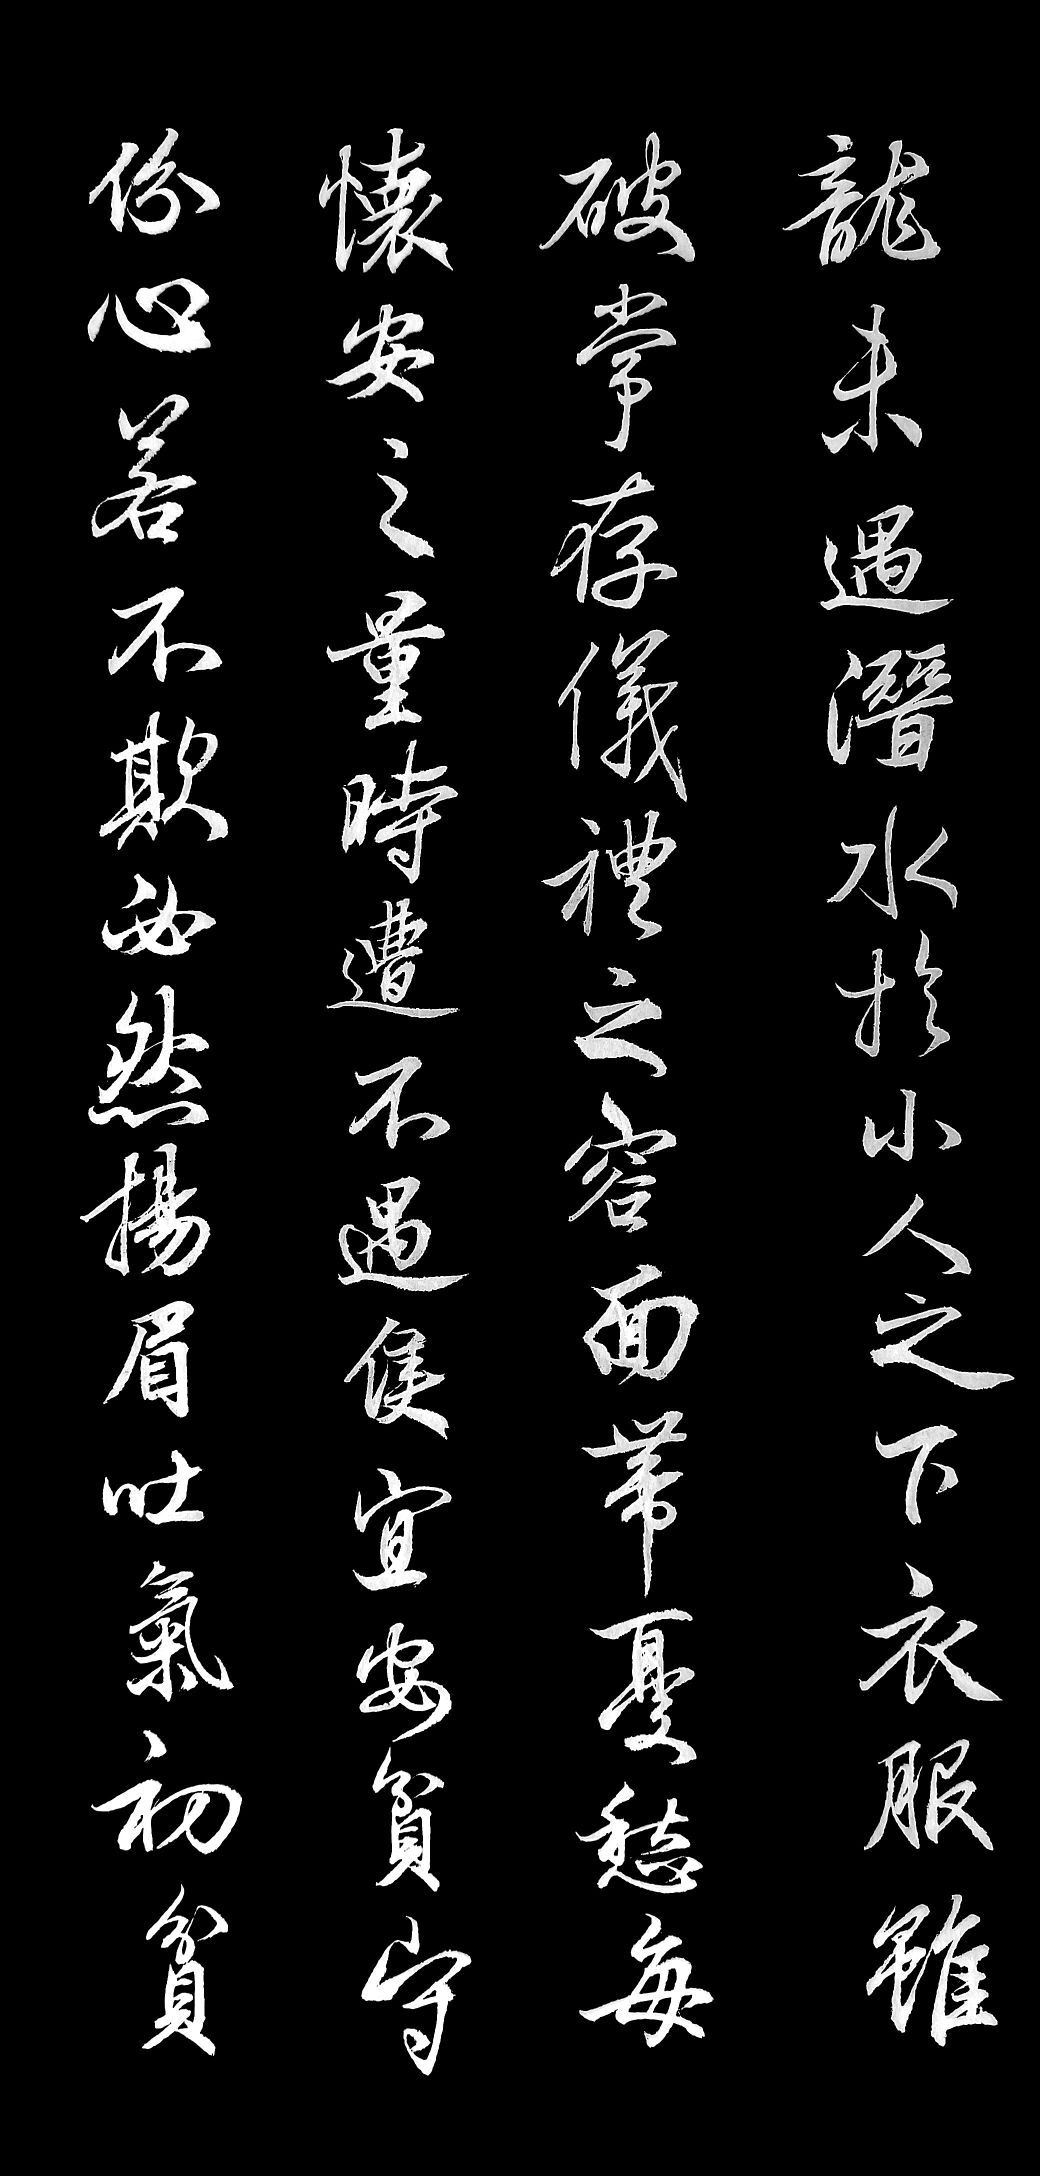 龍未遇潛水於小人之下衣服雖
破常存儀禮之容面帶憂愁每
懷安之量時遭不遇隻宜安貧守
份心若不欺必然揚眉吐氣初貧